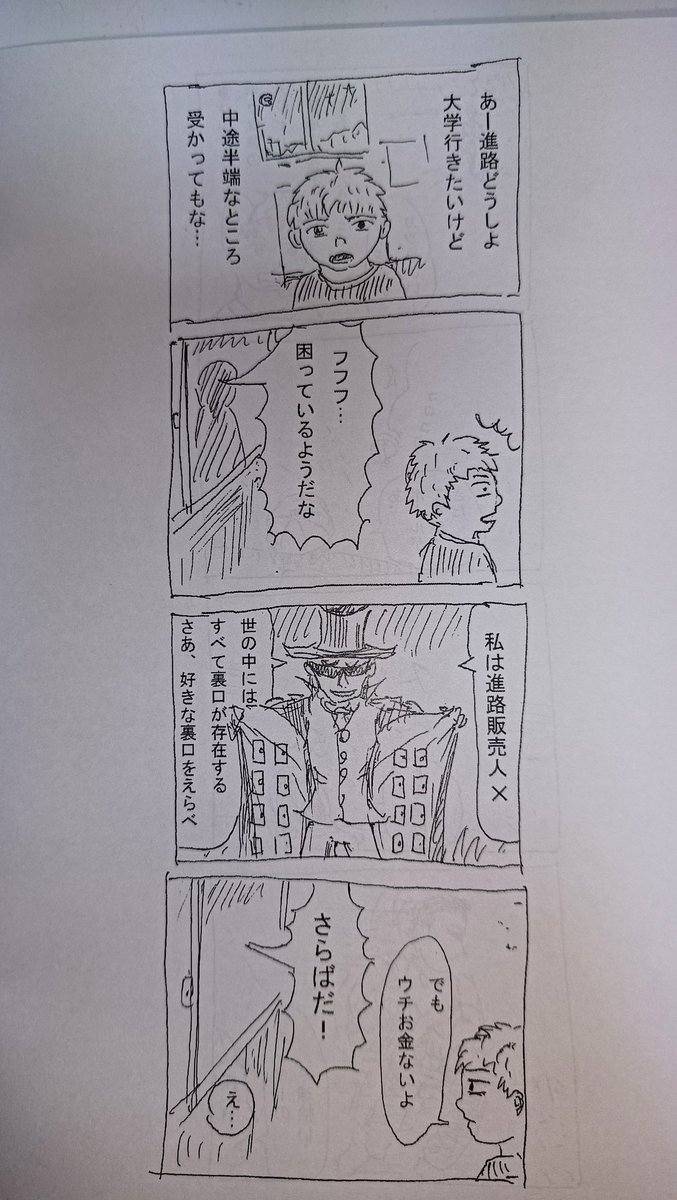 あー進路どうしよ
大学行きたいけど
中途半端なところ
受かってもな…
フフフ…
困っているようだな
私は進路販売人X
世の中には
すべて裏口が存在する
さあ、好きな裏口をえらべ
でも
ウチお金ないよ
さらばだ!
え…